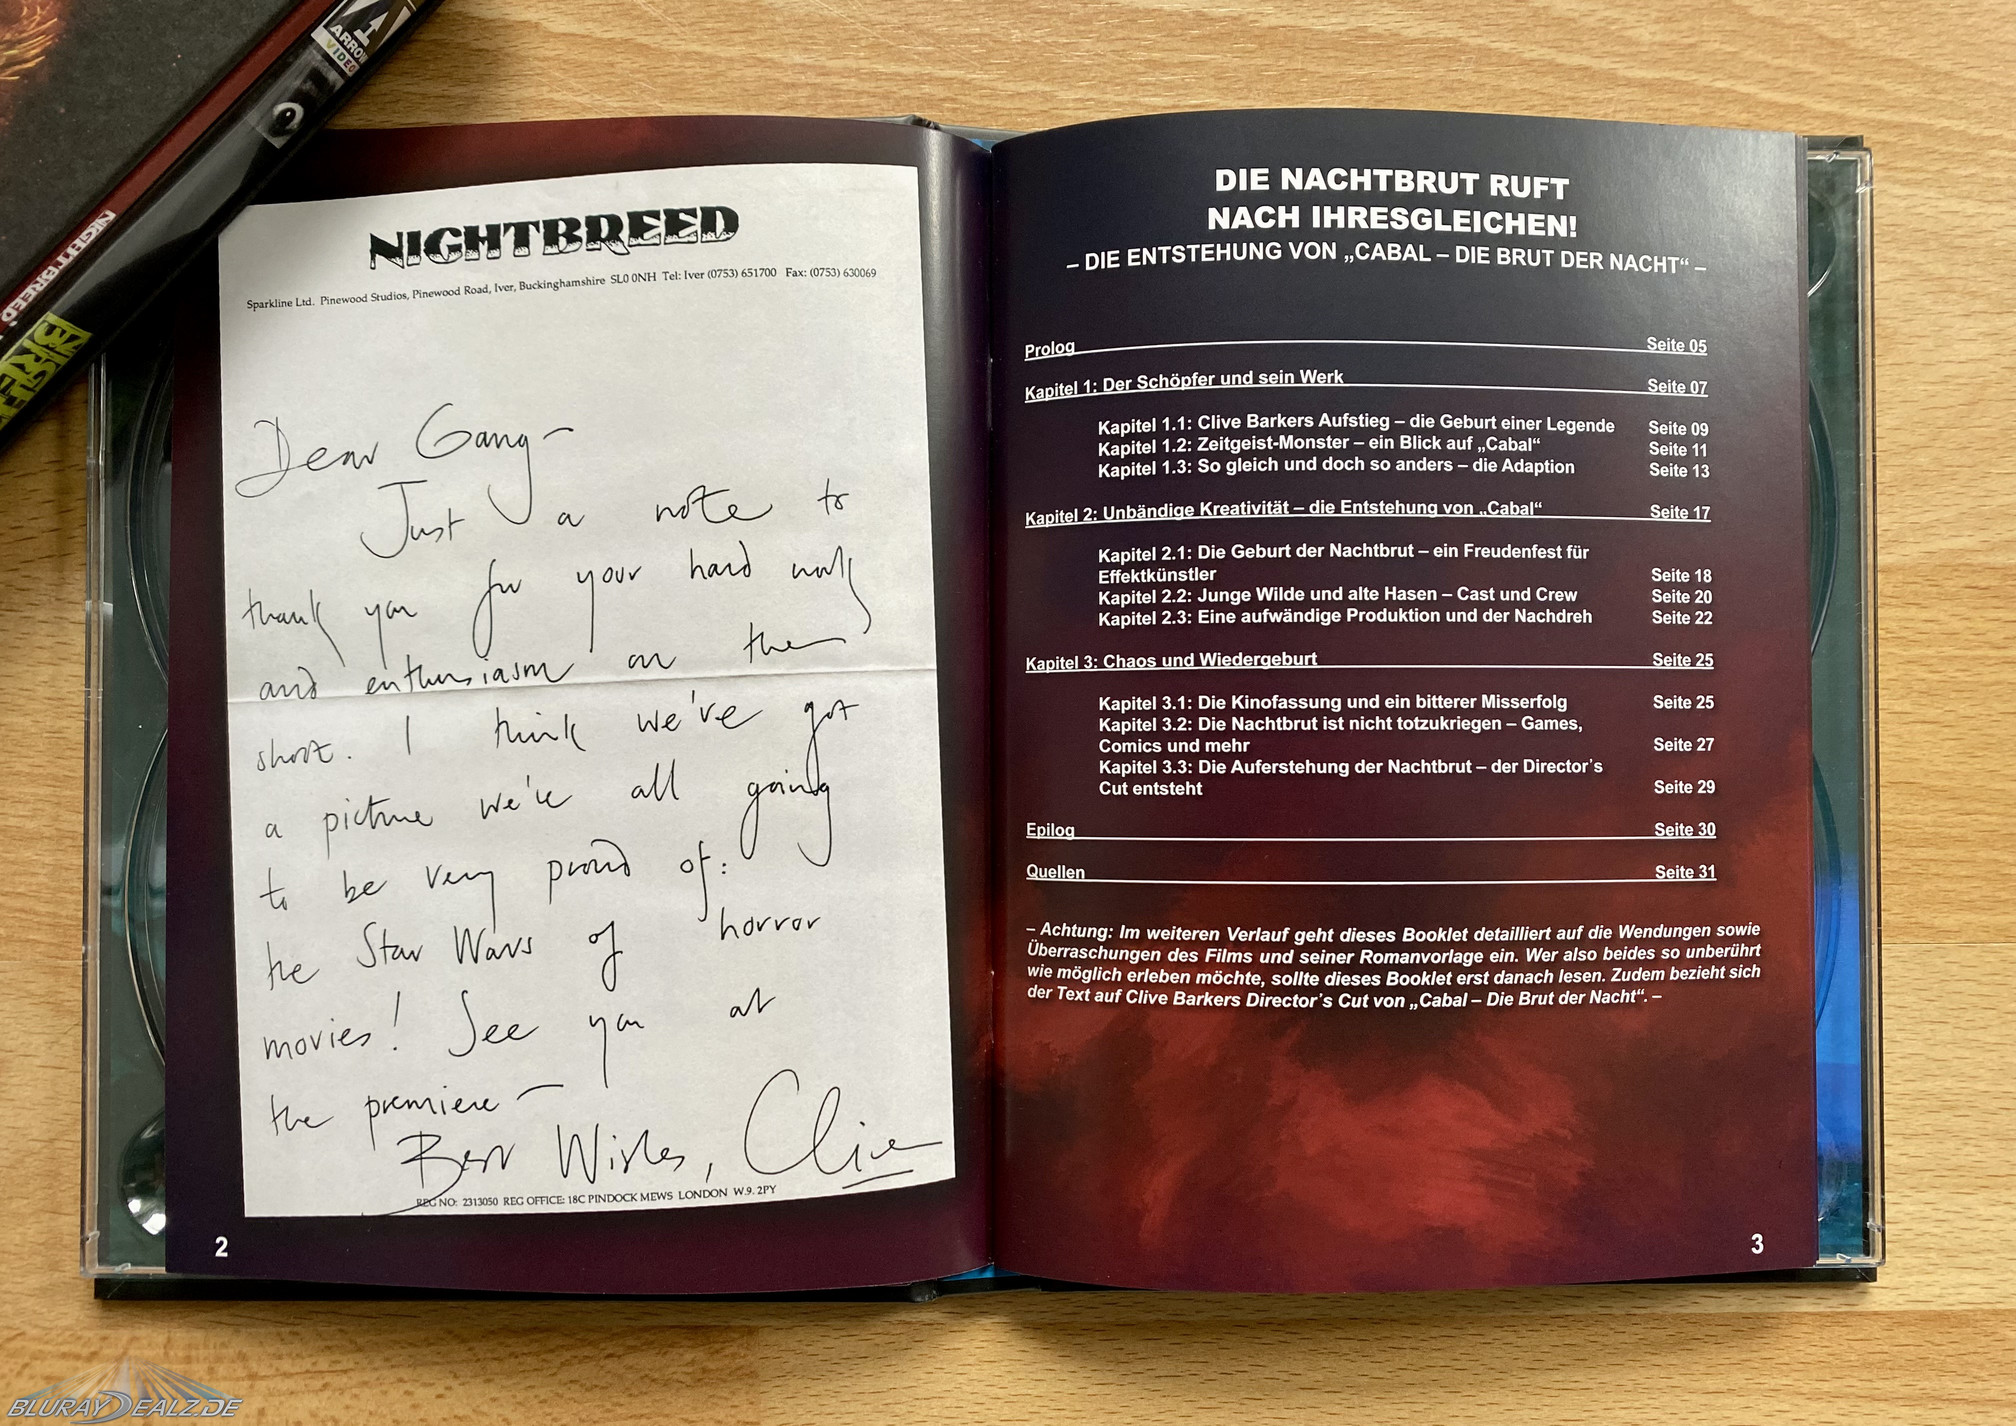 ARROW
VIDEO
NIGHTBREED
NIGHTBREED
Sparkline Ltd. Pinewood Studios, Pinewood Road, Iver, Buckinghamshire SL0 0NH Tel: Iver (0753) 651700 Fax: (0753) 630069
Dear Gang –
Just a note to
thank you for your hard work
and enthusiasm on the
shoot. I think we've got
a picture we're all going
to be very proud of:
the Star Wars of horror
movies! See you at
the premiere –
Best Wishes, Clive
REG NO: 2313050 REG OFFICE: 18C PINDOCK MEWS LONDON W.9. 2PY
2
DIE NACHTBRUT RUFT
NACH IHRESGLEICHEN!
– DIE ENTSTEHUNG VON „CABAL – DIE BRUT DER NACHT“ –
Prolog Seite 05
Kapitel 1: Der Schöpfer und sein Werk Seite 07
Kapitel 1.1: Clive Barkers Aufstieg – die Geburt einer Legende Seite 09
Kapitel 1.2: Zeitgeist-Monster – ein Blick auf „Cabal“ Seite 11
Kapitel 1.3: So gleich und doch so anders – die Adaption Seite 13
Kapitel 2: Unbändige Kreativität – die Entstehung von „Cabal“ Seite 17
Kapitel 2.1: Die Geburt der Nachtbrut – ein Freudenfest für
Effektkünstler Seite 18
Kapitel 2.2: Junge Wilde und alte Hasen – Cast und Crew Seite 20
Kapitel 2.3: Eine aufwändige Produktion und der Nachdreh Seite 22
Kapitel 3: Chaos und Wiedergeburt Seite 25
Kapitel 3.1: Die Kinofassung und ein bitterer Misserfolg Seite 25
Kapitel 3.2: Die Nachtbrut ist nicht totzukriegen – Games,
Comics und mehr Seite 27
Kapitel 3.3: Die Auferstehung der Nachtbrut – der Director's
Cut entsteht Seite 29
Epilog Seite 30
Quellen Seite 31
– Achtung: Im weiteren Verlauf geht dieses Booklet detailliert auf die Wendungen sowie
Überraschungen des Films und seiner Romanvorlage ein. Wer also beides so unberührt
wie möglich erleben möchte, sollte dieses Booklet erst danach lesen. Zudem bezieht sich
der Text auf Clive Barkers Director's Cut von „Cabal – Die Brut der Nacht“. –
3
BLURAYDEALZ.DE